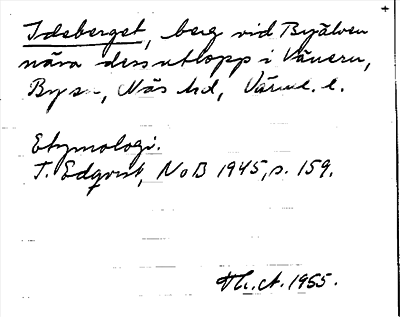 Ideberget, berg vid Byälven
nära dess utlopp i Vänern,
By sn, Näs hd, Värml. l.
Etymologi.
T. Edqvist, NoB 1945, s. 159.
Th. A. 1955.